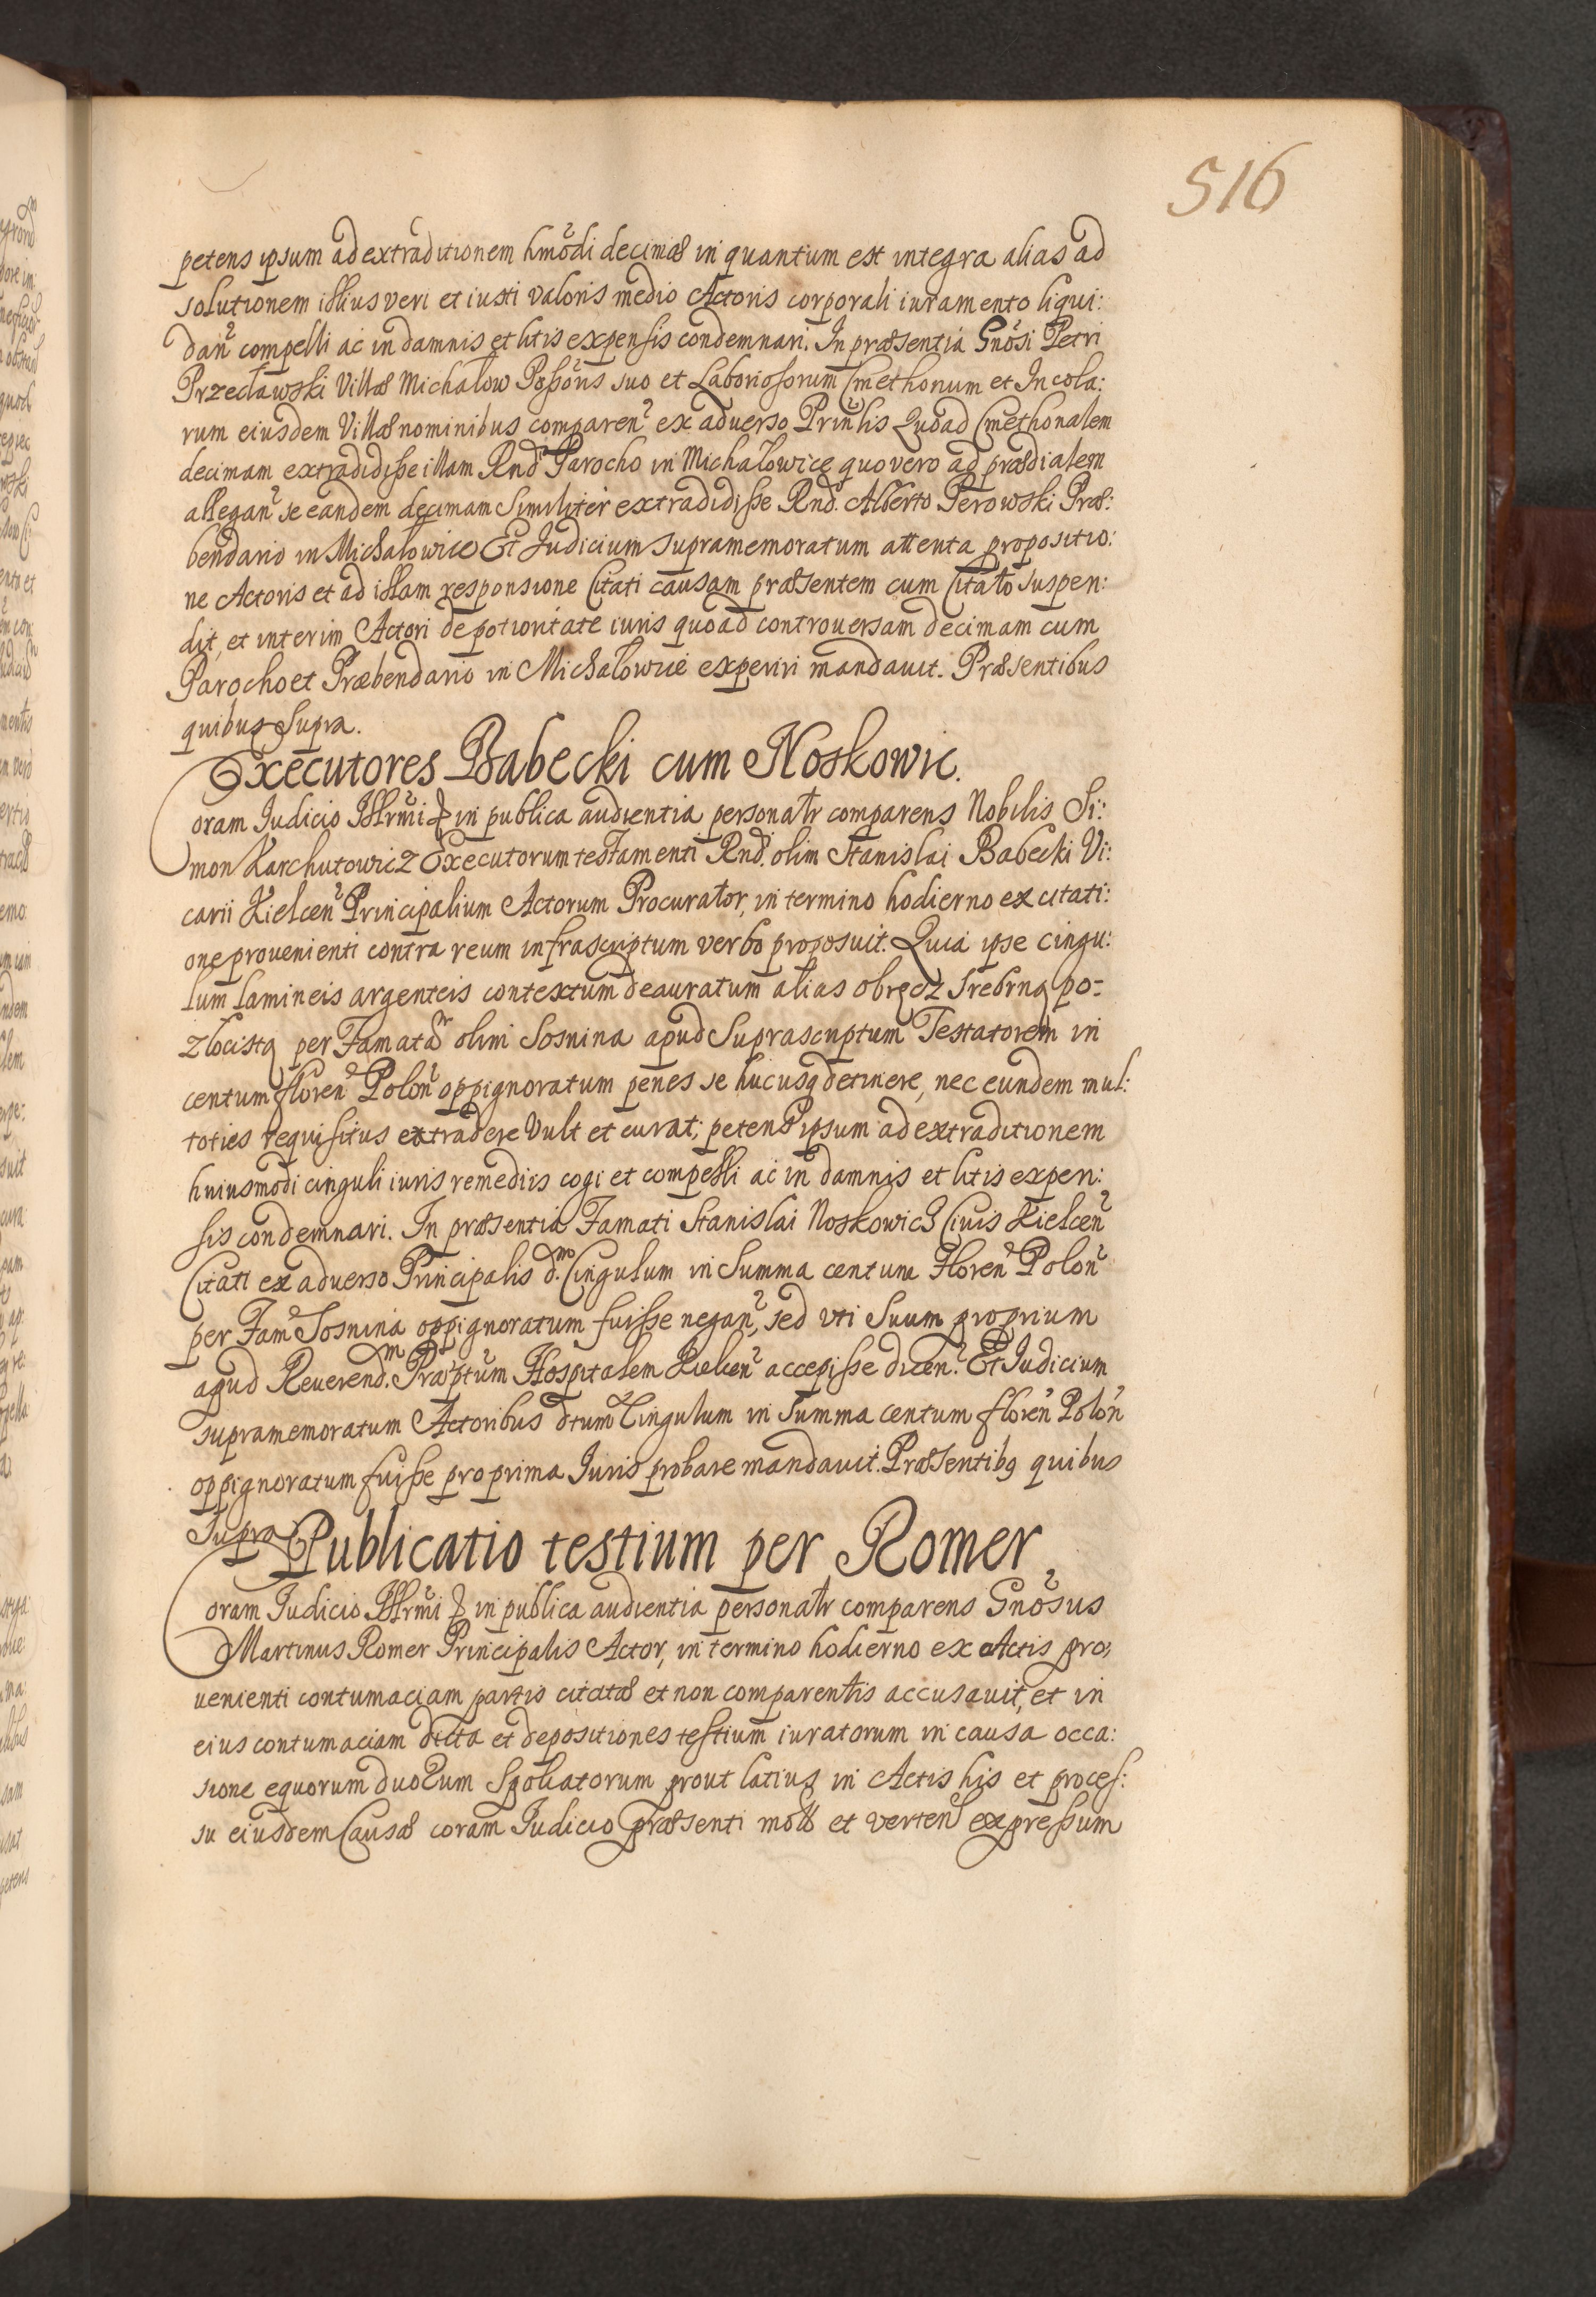 516
petens ipsum ad extraditionem hmõdi decimæ in quantum est integra alias ad
solutionem illius veri et iusti valoris medio Actoris corporali iuramento liqui:
dañ compelli ac in damnis et litis expensis condemnari. In præsentia Gnõsi Petri
Przecławski Villæ Michałow Poßõris suo et Laboriosorum Cmethonum et Incola:
rum eiusdem Villæ nominibus compareñ ex aduerso Prinlis Quoad Cmethonalem
decimam extradidiße illam Rnd Parocho in Michałowice quo vero ad prædialem
allegañ se eandem decimam Similiter extradidiße Rnd. Alberto Perowski Præ:
bendario in Michałowice Et Judicium supramemoratum attenta propositio:
ne Actoris et ad illam responsione Citati causam præsentem cum Citato suspen:
dit, et interim Actori de potioritate iuris quoad controuersam decimam cum
Parocho et Præbendario in Michałowice experiri mandauit. Præsentibus
quibus Supra.
Executores Babecki cum Noskowic.
Coram Iudicio Illrmi & in publica audientia personalr comparens Nobilis Si:
mon Karchutowicz Executorum testamenti Rnd. olim Stanislai Babecki Vi:
carii Kielceñ Principalium Actorum Procurator, in termino hodierno ex citati:
one prouenienti contra reum infrascriptum verbo proposuit. Quia ipse cingu:
lum lamineis argenteis contextum deauratum alias obręcz srebrną po-
złocistą per Famatã olim Sosnina apud Suprascriptum Testatorem in
centum floreñ Poloñ oppignoratum penes se hucusq detinere, nec eundem mul:
toties requisitus extradere Vult et curat, petens ipsum ad extraditionem
huiusmodi cinguli iuris remediis cogi et compelli ac in damnis et litis expen:
sis condemnari. In præsentia Famati Stanislai Noskowicz Ciuis Kielceñ
Citati ex aduerso Principalis Cingulum in Summa centum Floreñ Poloñ
per Fam Sosnina oppignoratum fuiße negañ, sed vti Suum proprium
apud Reuerend.m Præptum Hospitalem Kielceñ accepiße diceñ. Et Judicium
supramemoratum Actoribus dtum Cingulum in Summa centum floreñ Poloñ
oppignoratum fuiße pro prima Iuris probare mandauit. Præsentibq quibus
Supra
Publicatio testium per Romer.
Coram Iudicio Illrmi & in publica audientia personalr comparens Gnõsus
Martinus Romer Principalis Actor, in termino hodierno ex Actis pro,
uenienti contumaciam partis citatæ et non comparentis accusauit, et in
eius contumaciam dicta et depositiones testium iuratorum in causa occa:
sione equorum duorum Spoliatorum prout latius in Actis his et proces:
su eiusdem Causæ coram Iudicio præsenti motæ et verteñ expreßum